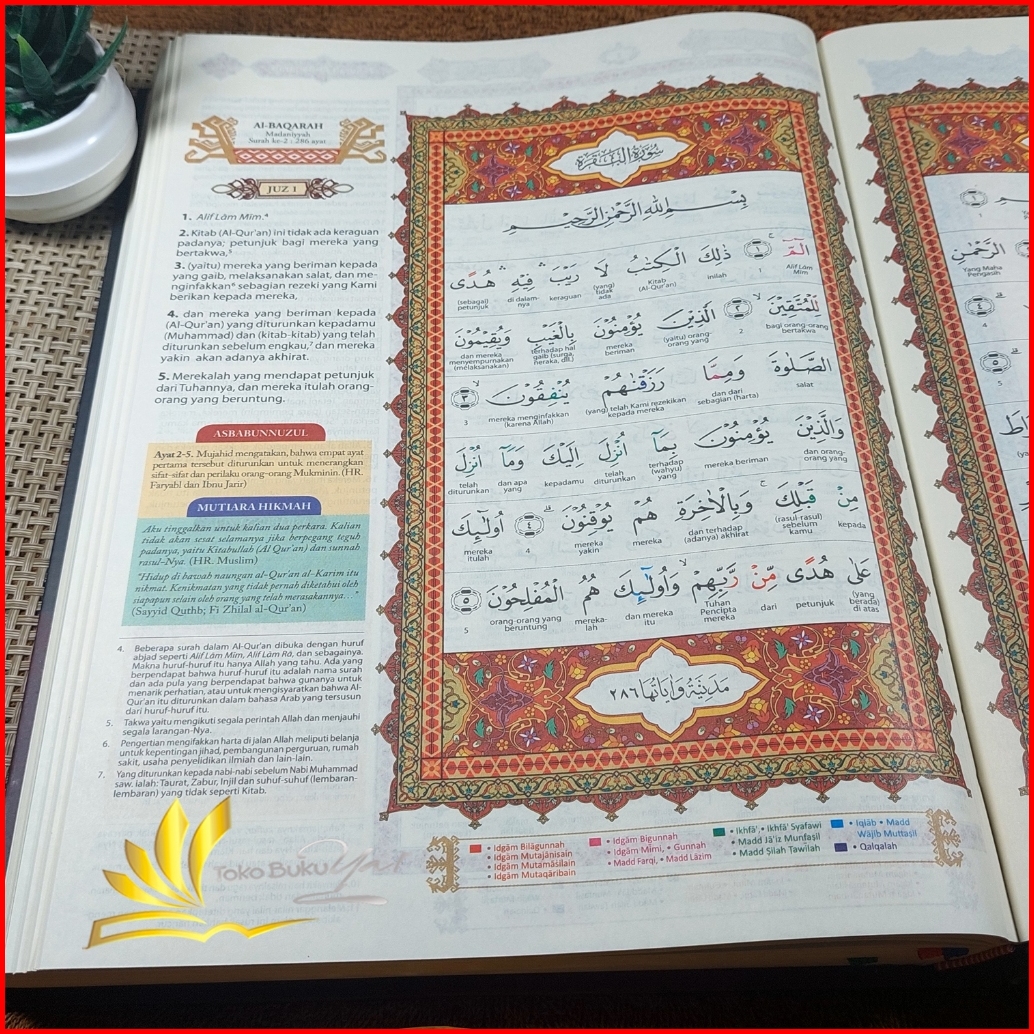 Al-BAQARAH
Madaniyyah
Surah ke-2 : 286 ayat
JUZ 1
1. Alif Lām Mīm.⁴
2. Kitab (Al-Qur'an) ini tidak ada keraguan
padanya; petunjuk bagi mereka yang
bertakwa,⁵
3. (yaitu) mereka yang beriman kepada
yang gaib, melaksanakan salat, dan me-
nginfakkan⁶ sebagian rezeki yang Kami
berikan kepada mereka,
4. dan mereka yang beriman kepada
(Al-Qur'an) yang diturunkan kepadamu
(Muhammad) dan (kitab-kitab) yang telah
diturunkan sebelum engkau,⁷ dan mereka
yakin akan adanya akhirat.
5. Merekalah yang mendapat petunjuk
dari Tuhannya, dan mereka itulah orang-
orang yang beruntung.
ASBABUNNUZUL
Ayat 2-5. Mujahid mengatakan, bahwa empat ayat
pertama tersebut diturunkan untuk menerangkan
sifat-sifat dan perilaku orang-orang Mukminin. (HR.
Faryabī dan Ibnu Jarir)
MUTIARA HIKMAH
Aku tinggalkan untuk kalian dua perkara. Kalian
tidak akan sesat selamanya jika berpegang teguh
padanya, yaitu Kitabullah (Al Qur'an) dan sunnah
rasul-Nya. (HR. Muslim)
"Hidup di bawah naungan al-Qur'an al-Karim itu
nikmat. Kenikmatan yang tidak pernah diketahui oleh
siapapun selain oleh orang yang telah merasakannya…"
(Sayyid Quthb; Fi Zhilal al-Qur'an)
4. Beberapa surah dalam Al-Qur'an dibuka dengan huruf
abjad seperti Alif Lām Mīm, Alif Lām Rā, dan sebagainya.
Makna huruf-huruf itu hanya Allah yang tahu. Ada yang
berpendapat bahwa huruf-huruf itu adalah nama surah
dan ada pula yang berpendapat bahwa gunanya untuk
menarik perhatian, atau untuk mengisyaratkan bahwa Al-
Qur'an itu diturunkan dalam bahasa Arab yang tersusun
dari huruf-huruf itu.
5. Takwa yaitu mengikuti segala perintah Allah dan menjauhi
segala larangan-Nya.
6. Pengertian mengifakkan harta di jalan Allah meliputi belanja
untuk kepentingan jihad, pembangunan perguruan, rumah
sakit, usaha penyelidikan ilmiah dan lain-lain.
7. Yang diturunkan kepada nabi-nabi sebelum Nabi Muhammad
saw. ialah: Taurat, Zabur, Injil dan suhuf-suhuf (lembaran-
lembaran) yang tidak seperti Kitab.
سُوْرَةُ الْبَقَرَةِ
بِسْمِ اللّٰهِ الرَّحْمٰنِ الرَّحِيْمِ
الۤمّۤ ۚ ١ ذٰلِكَ الْكِتٰبُ لَا رَيْبَ ۛ فِيْهِ ۛ هُدًى
Alif Lām Mīm 1 inilah Kitab (Al-Qur'an) (yang) tidak ada keraguan di dalam-nya (sebagai) petunjuk
لِّلْمُتَّقِيْنَۙ ٢ الَّذِيْنَ يُؤْمِنُوْنَ بِالْغَيْبِ وَيُقِيْمُوْنَ
bagi orang-orang bertakwa 2 (yaitu) orang-orang yang mereka beriman terhadap hal gaib (surga, neraka, dll.) dan mereka menyempurnakan (melaksanakan)
الصَّلٰوةَ وَمِمَّا رَزَقْنٰهُمْ يُنْفِقُوْنَۙ ٣
salat dan dari sebagian (harta) (yang) telah Kami rezekikan kepada mereka mereka menginfakkan (karena Allah) 3
وَالَّذِيْنَ يُؤْمِنُوْنَ بِمَآ اُنْزِلَ اِلَيْكَ وَمَآ اُنْزِلَ
dan orang-orang yang mereka beriman terhadap (wahyu) yang telah diturunkan kepadamu dan apa yang telah diturunkan
مِنْ قَبْلِكَ ۚ وَبِالْاٰخِرَةِ هُمْ يُوْقِنُوْنَۗ ٤ اُولٰۤىِٕكَ
kepada (rasul-rasul) sebelum kamu dan terhadap (adanya) akhirat mereka mereka yakin 4 mereka itulah
عَلٰى هُدًى مِّنْ رَّبِّهِمْ ۙ وَاُولٰۤىِٕكَ هُمُ الْمُفْلِحُوْنَ ٥
(yang berada) di atas petunjuk dari Tuhan Pencipta mereka dan mereka itu mereka-lah orang-orang yang beruntung 5
مَدَنِيَّةٌ وَاٰيَاتُهَا ٢٨٦
• Idgām Bilāgunnah
• Idgām Mutajānisain
• Idgām Mutamāsilain
• Idgām Mutaqāribain
• Idgām Bigunnah
• Idgām Mimi, • Gunnah
• Madd Farqi, • Madd Lāzim
• Ikhfā', • Ikhfā' Syafawi
• Madd Jā'iz Munfaṣil
• Madd Ṣilah Ṭawīlah
• Iqlāb • Madd
Wājib Muttaṣil
• Qalqalah
١
1
الرَّحْمٰنِ
Yang Maha
Pengasih
٤
4
٥
5
Toko Buku